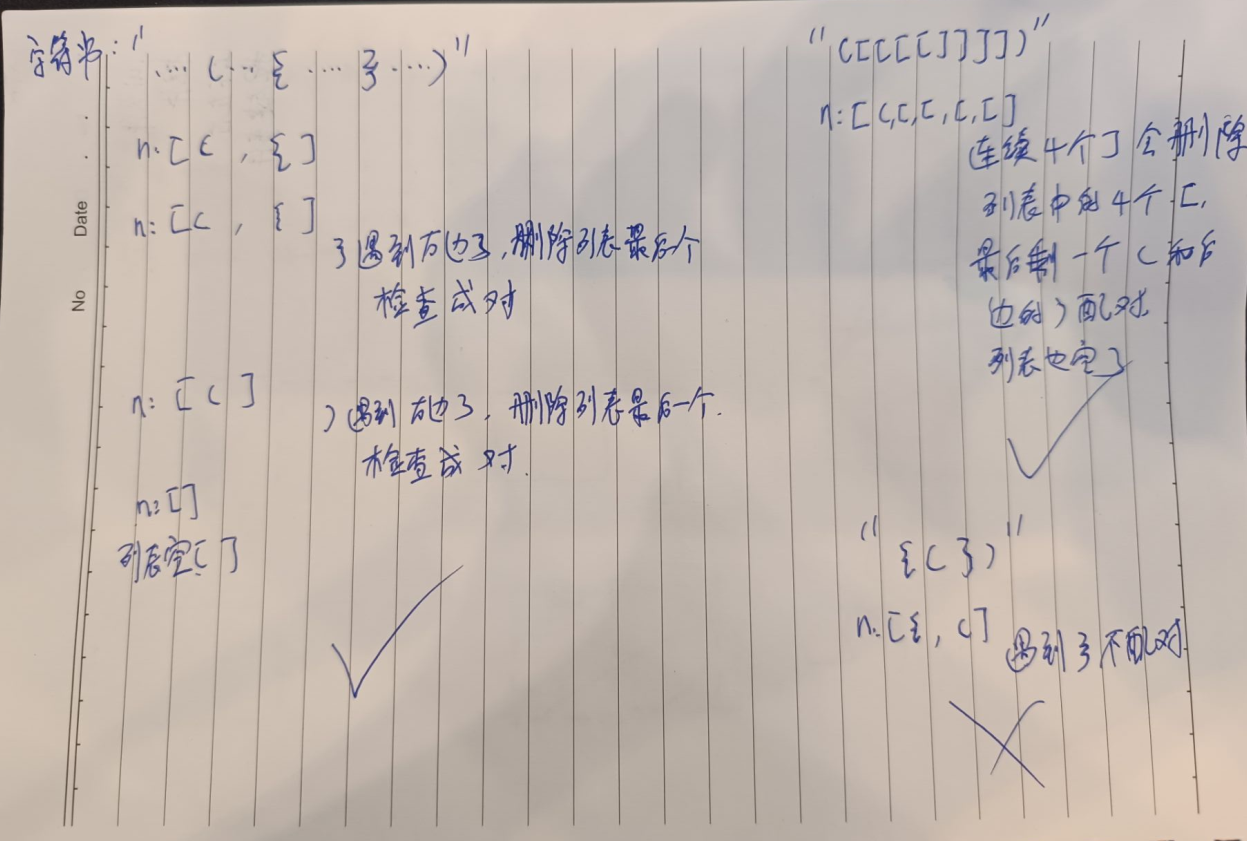 字符串："
.... (... { .... } ....) "
n: [ ( , { ]
n: [ ( , { ]
} 遇到右边了，删除列表最后个
检查成对
n: [ ( ]
) 遇到右边了，删除列表最后一个.
检查成对.
n: []
列表空[ ]
No
Date
" ([[[[]]]]) "
n: [ (,[,[,[,[ ]
连续4个 ] 会删除
列表中的4个 [,
最后剩一个 ( 和右
边的 ) 配对,
列表也空了
" { ( } ) "
n: [{ , (] 遇到 } 不配对.